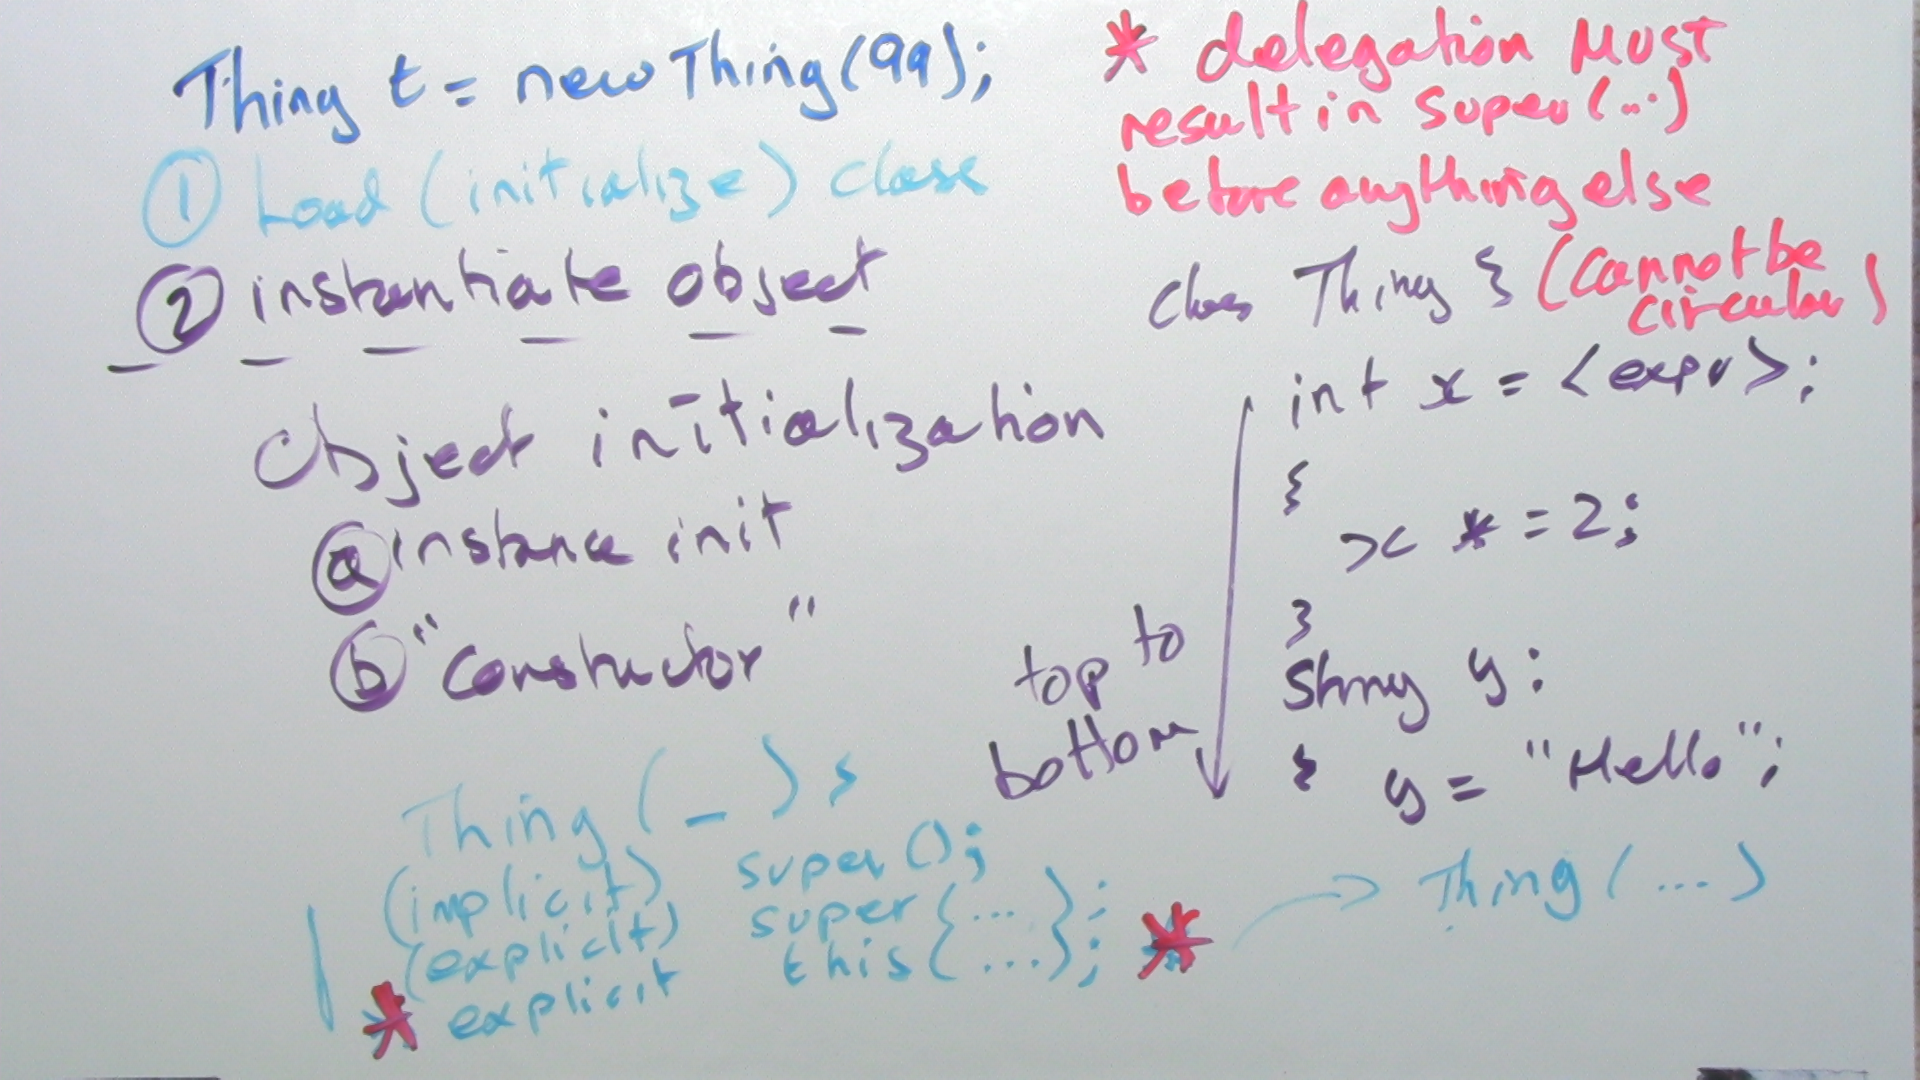 Thing t = new Thing(99);
① Load (initialize) class
② instantiate object
Object initialization
ⓐ instance init
ⓑ "constructor"
Thing (_) {
(implicit) super();
(explicit) super(...);
* explicit this(...); * → Thing(...)
* delegation MUST
result in super(...)
before anything else
(cannot be
circular)
class Thing {
int x = <expr>;
{
x *= 2;
}
String y;
{ y = "Hello";
top to
bottom